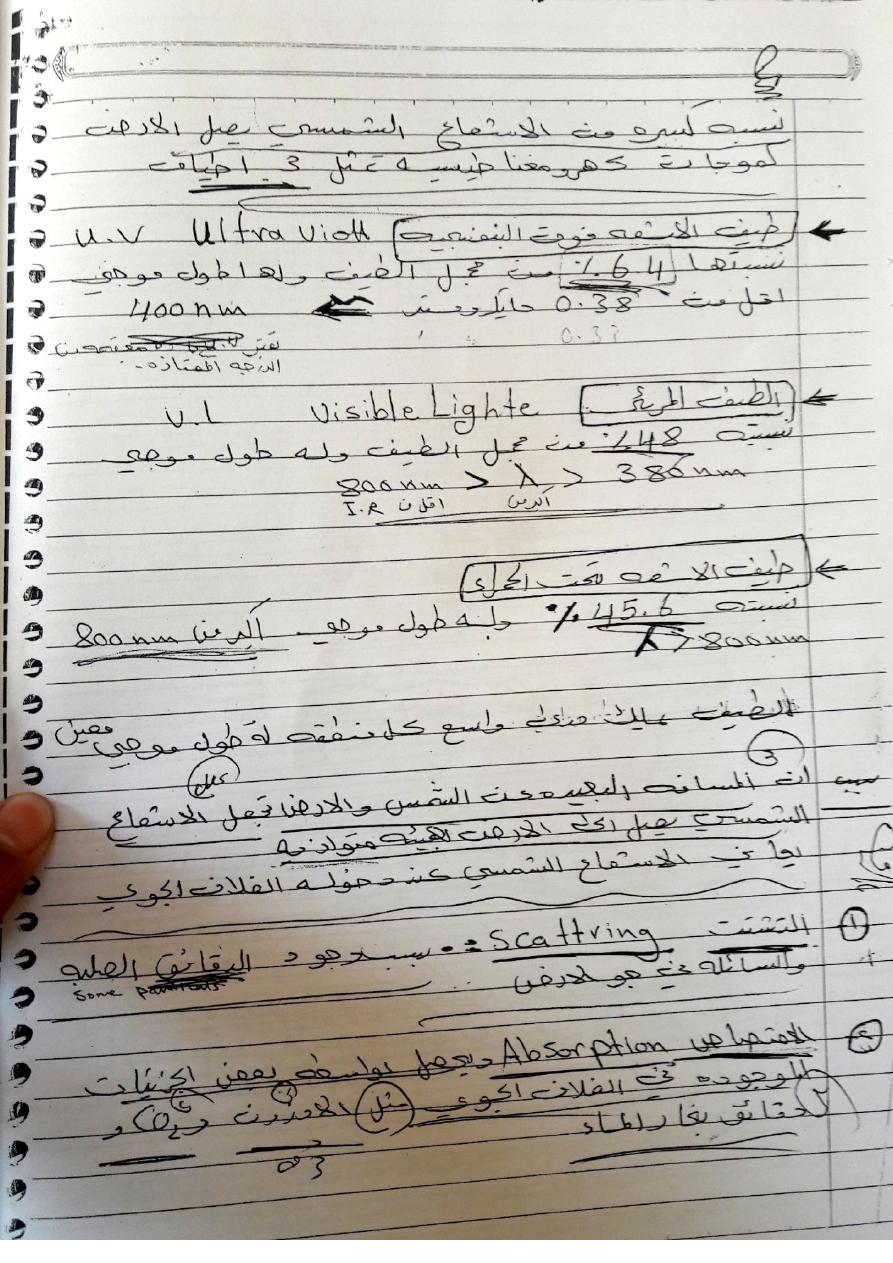 نسبه كبيره من الاشعاع الشمسي يصل الارض
كموجات كهرومغناطيسيه تمثل 3 اطياف
طيف الاشعه فوق البنفسجيه U.V Ultra Viott
نسبتها 6.4٪ من مجمل الطيف ولها طول موجي
اقل من 0.38 مايكرومتر 400nm
الدرجه الممتازه
الطيف المرئي Visible Lighte V.L
نسبته 48٪ من مجمل الطيف وله طول موجي
800nm > λ > 380nm
I.R اقل من اكبر من
طيف الاشعه تحت الحمراء
نسبته 45.6٪ وله طول موجي اكبر من 800nm
λ > 800nm
الطيف يملك مدى واسع كل منطقه له طول موجي معين
3
علل
سبب ان المسافه البعيده بين الشمس والارض تجعل الاشعاع
الشمسي يصل الى الارض بهيئه متوازيه
يعاني الاشعاع الشمسي عند دخوله الغلاف الجوي
1 التشتت Scattring :- بسبب وجود الدقائق الصلبه
والسائله في جو الارض
some
2 الامتصاص Absorption ويحصل بواسطه بعض الجزيئات
الموجوده في الغلاف الجوي مثل الاوزون و CO2 و
دقائق بخار الماء
O3